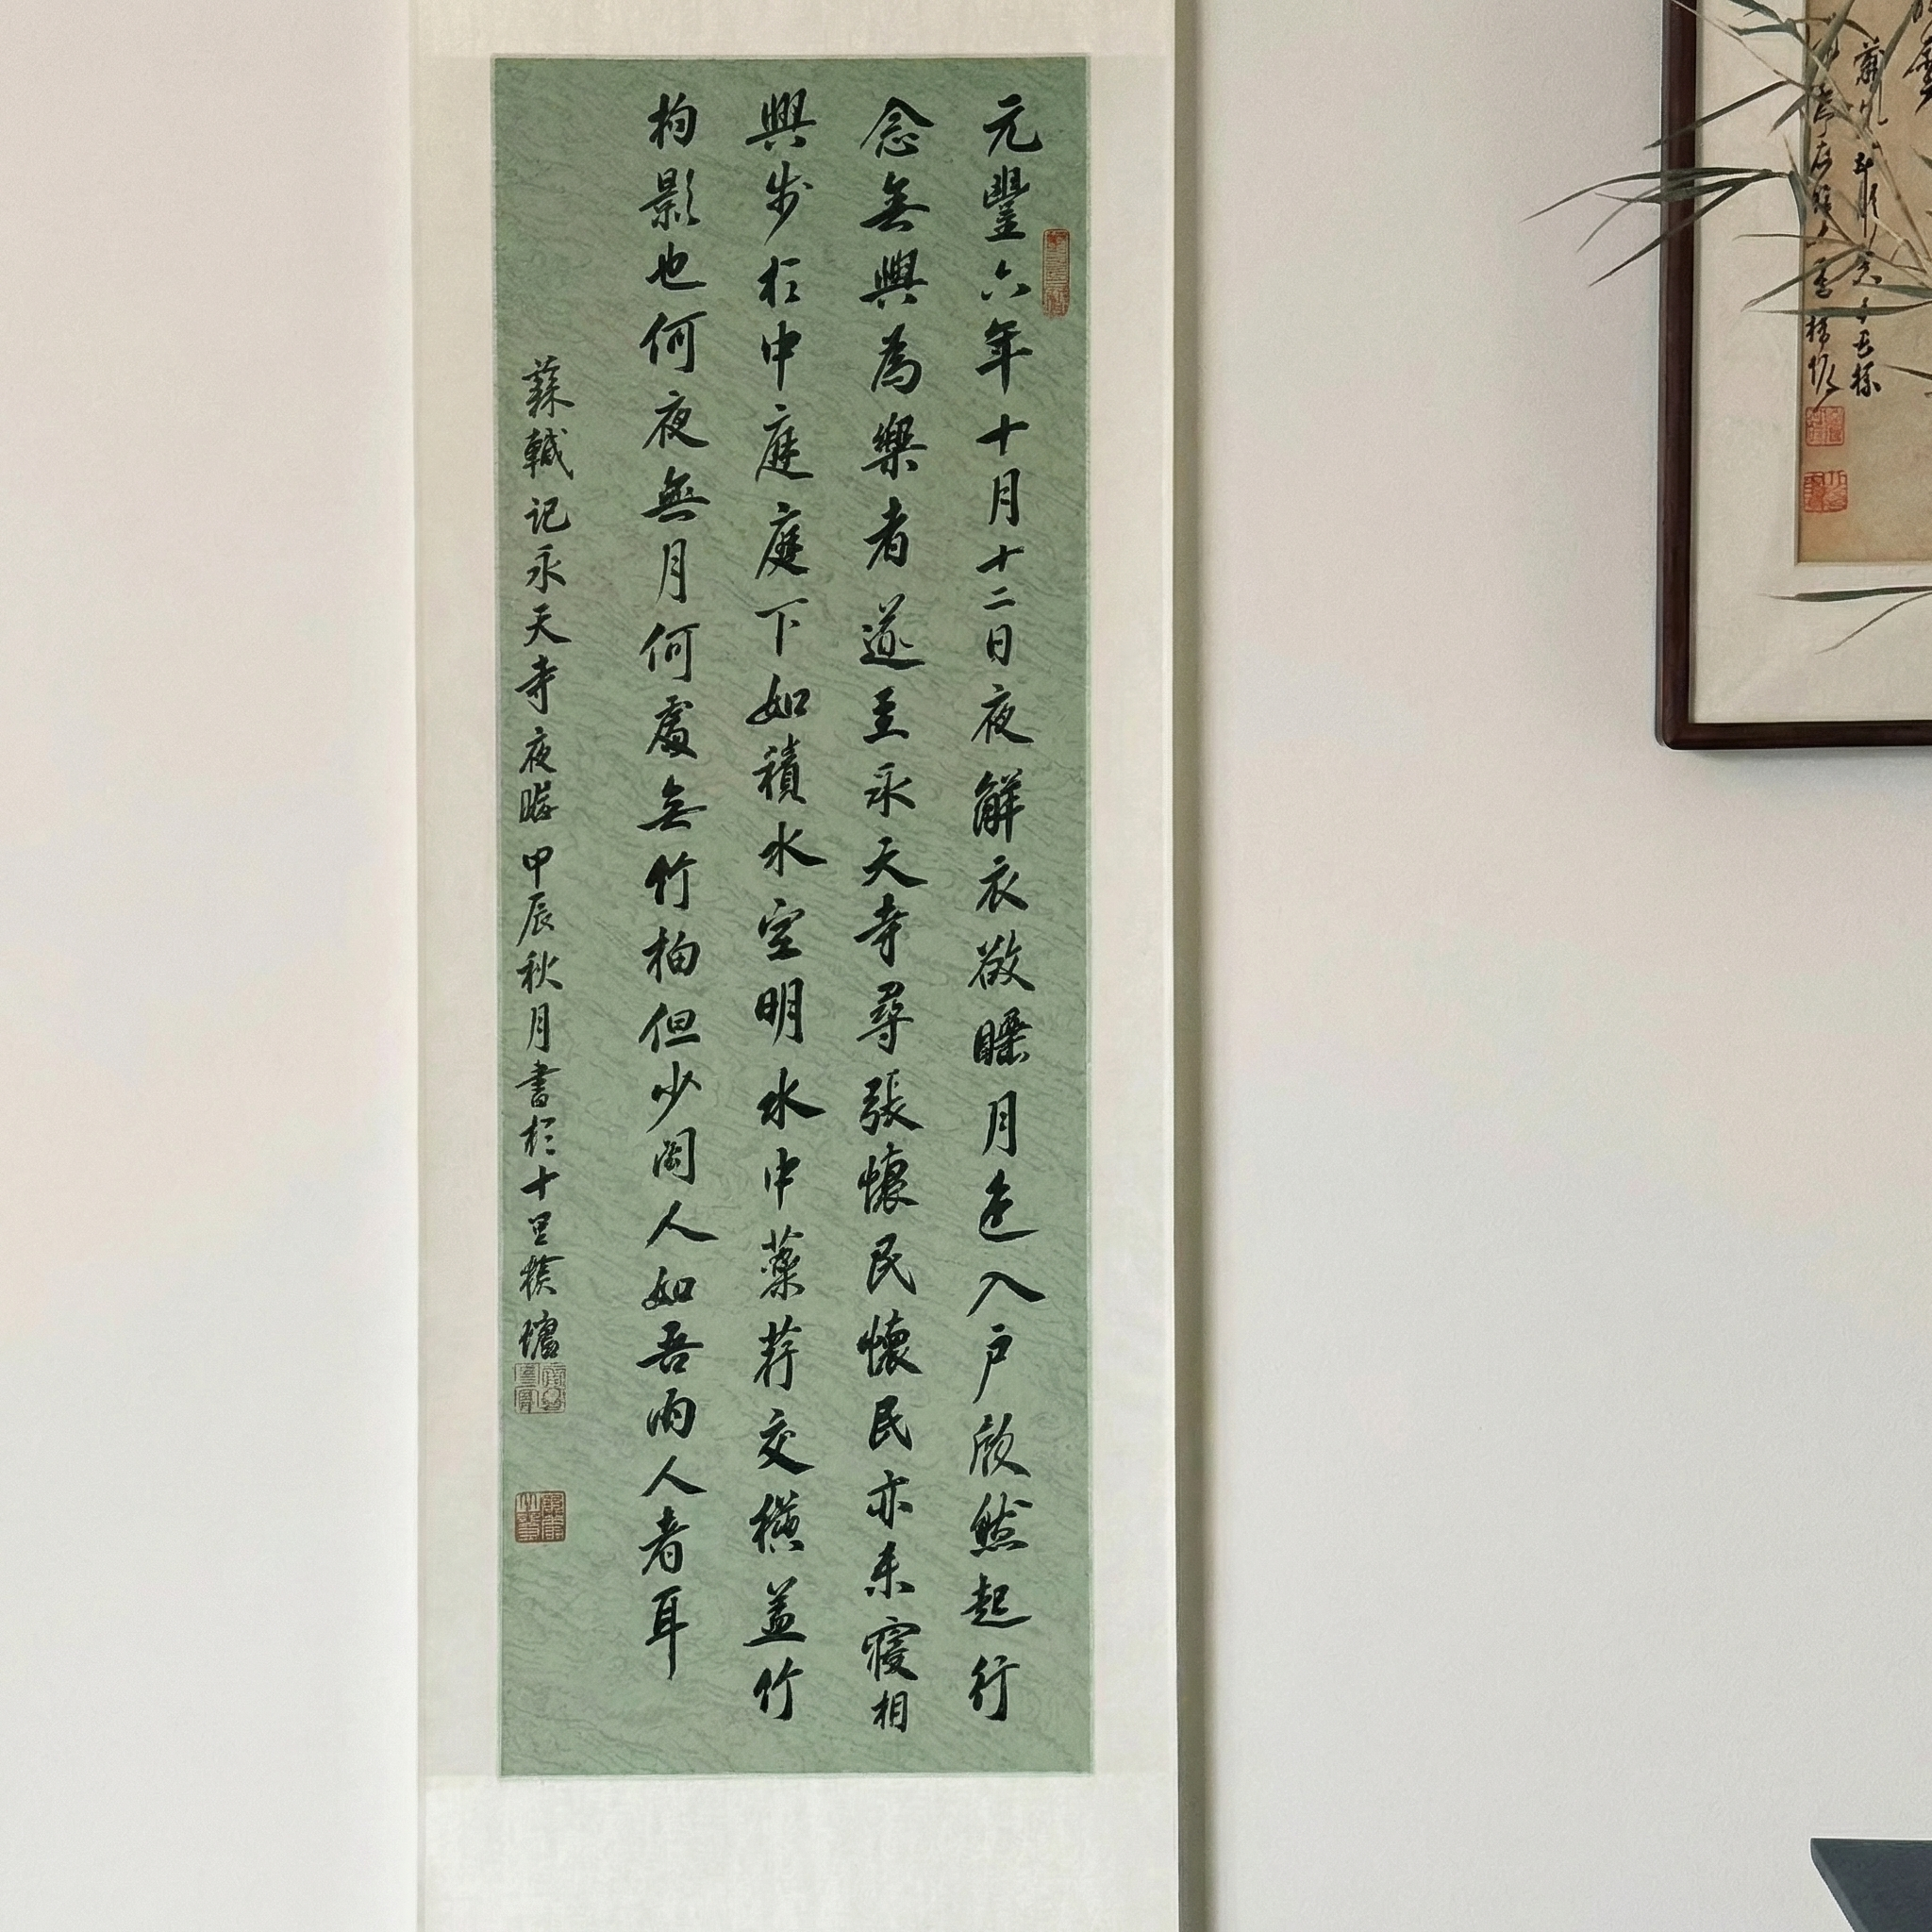 元豐六年十月十二日夜解衣欲睡月色入户欣然起行
念無與為樂者遂至承天寺尋張懷民懷民亦未寢相
與步於中庭庭下如積水空明水中藻荇交橫蓋竹
柏影也何夜無月何處無竹柏但少閑人如吾兩人者耳
蘇軾记承天寺夜 甲辰秋月書於十里